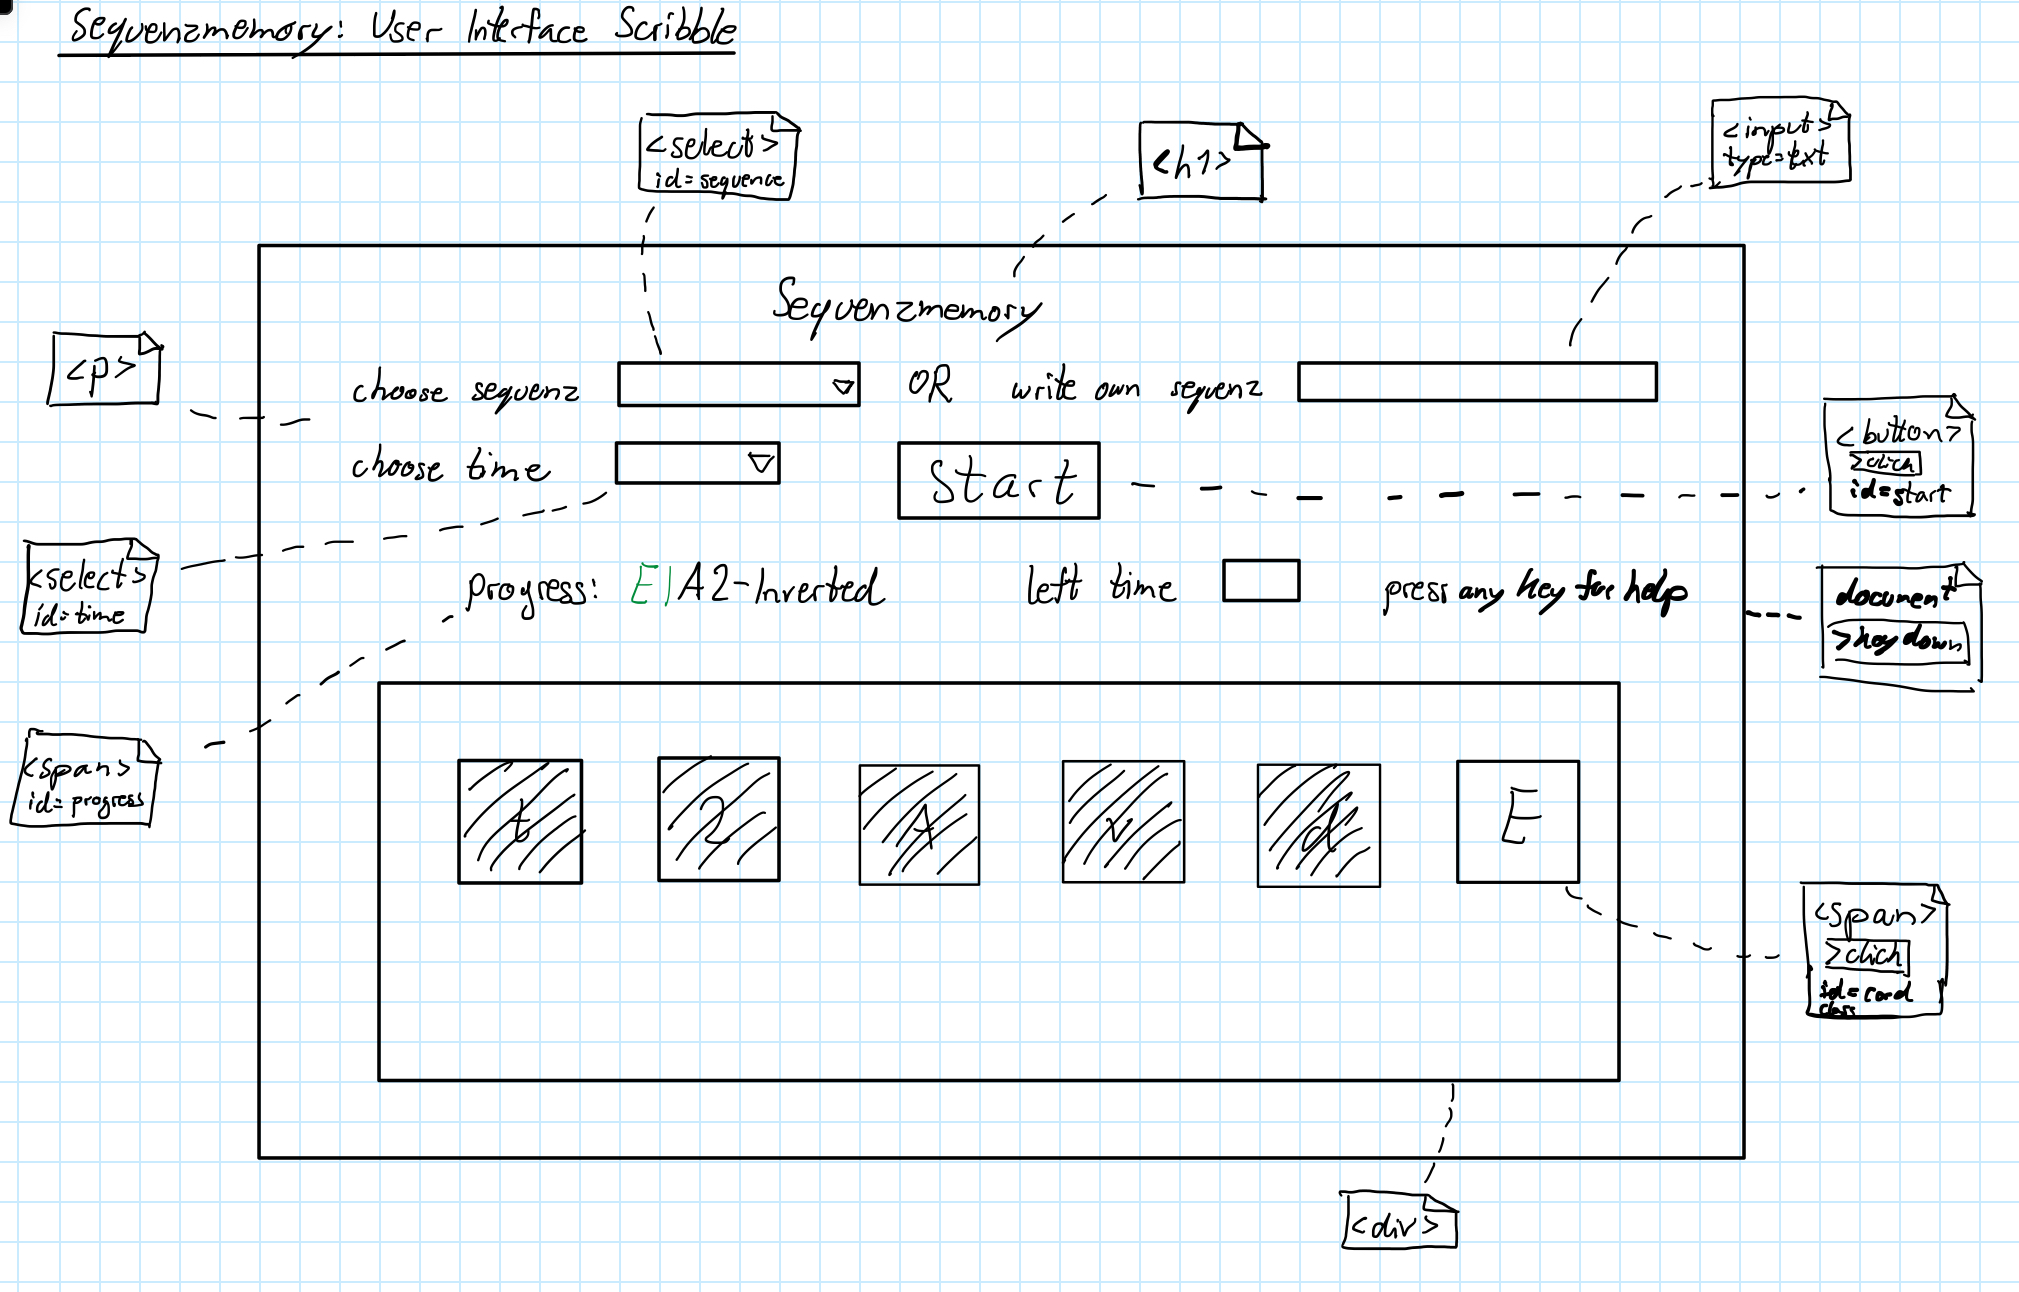 Sequenzmemory: User Interface Scribble
<select>
id=sequence
<h1>
<input>
type=text
Sequenzmemory
<p>
choose sequenz OR write own sequenz
<button>
>click
id=start
choose time Start
<select>
id=time
Progress: EIA2-Inverted left time press any key for help
document
>keydown
<span>
id=progress
t 2 A v d E
<span>
>click
id=card
class
<div>